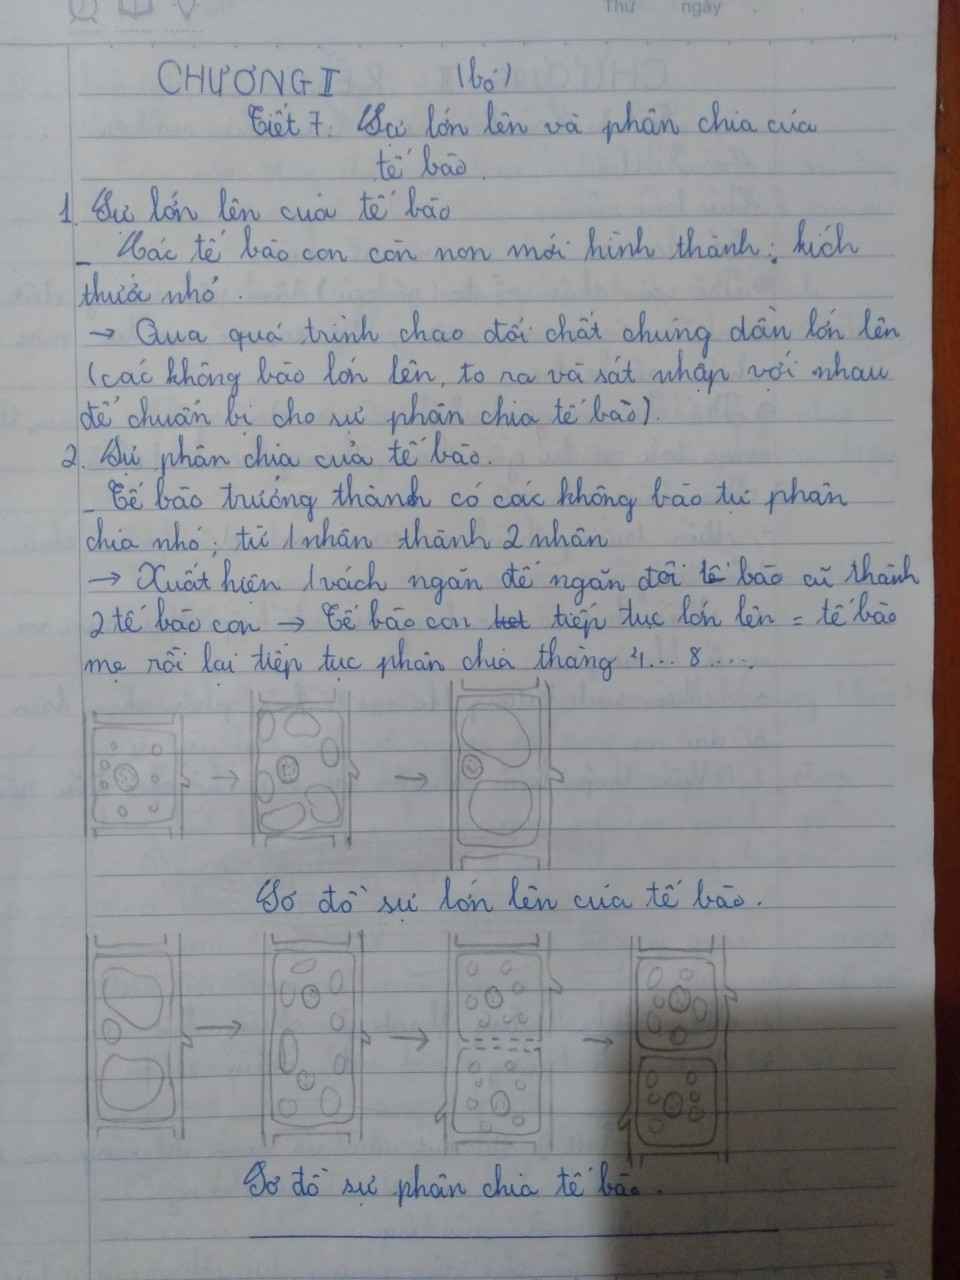 Thứ ngày
CHƯƠNG II (bỏ)
Tiết 7. Sự lớn lên và phân chia của
tế bào.
1. Sự lớn lên của tế bào
- Các tế bào con còn non mới hình thành; kích
thước nhỏ.
→ Qua quá trình chao đổi chất chúng dần lớn lên
(các không bào lớn lên, to ra và sát nhập với nhau
để chuẩn bị cho sự phân chia tế bào).
2. Sự phân chia của tế bào.
- Tế bào trưởng thành có các không bào tự phân
chia nhỏ; từ 1 nhân thành 2 nhân
→ Xuất hiện 1 vách ngăn để ngăn đôi tế bào cũ thành
2 tế bào con → Tế bào con tiếp tục lớn lên = tế bào
mẹ rồi lại tiếp tục phân chia thàng 4... 8....
Sơ đồ sự lớn lên của tế bào.
Sơ đồ sự phân chia tế bào.